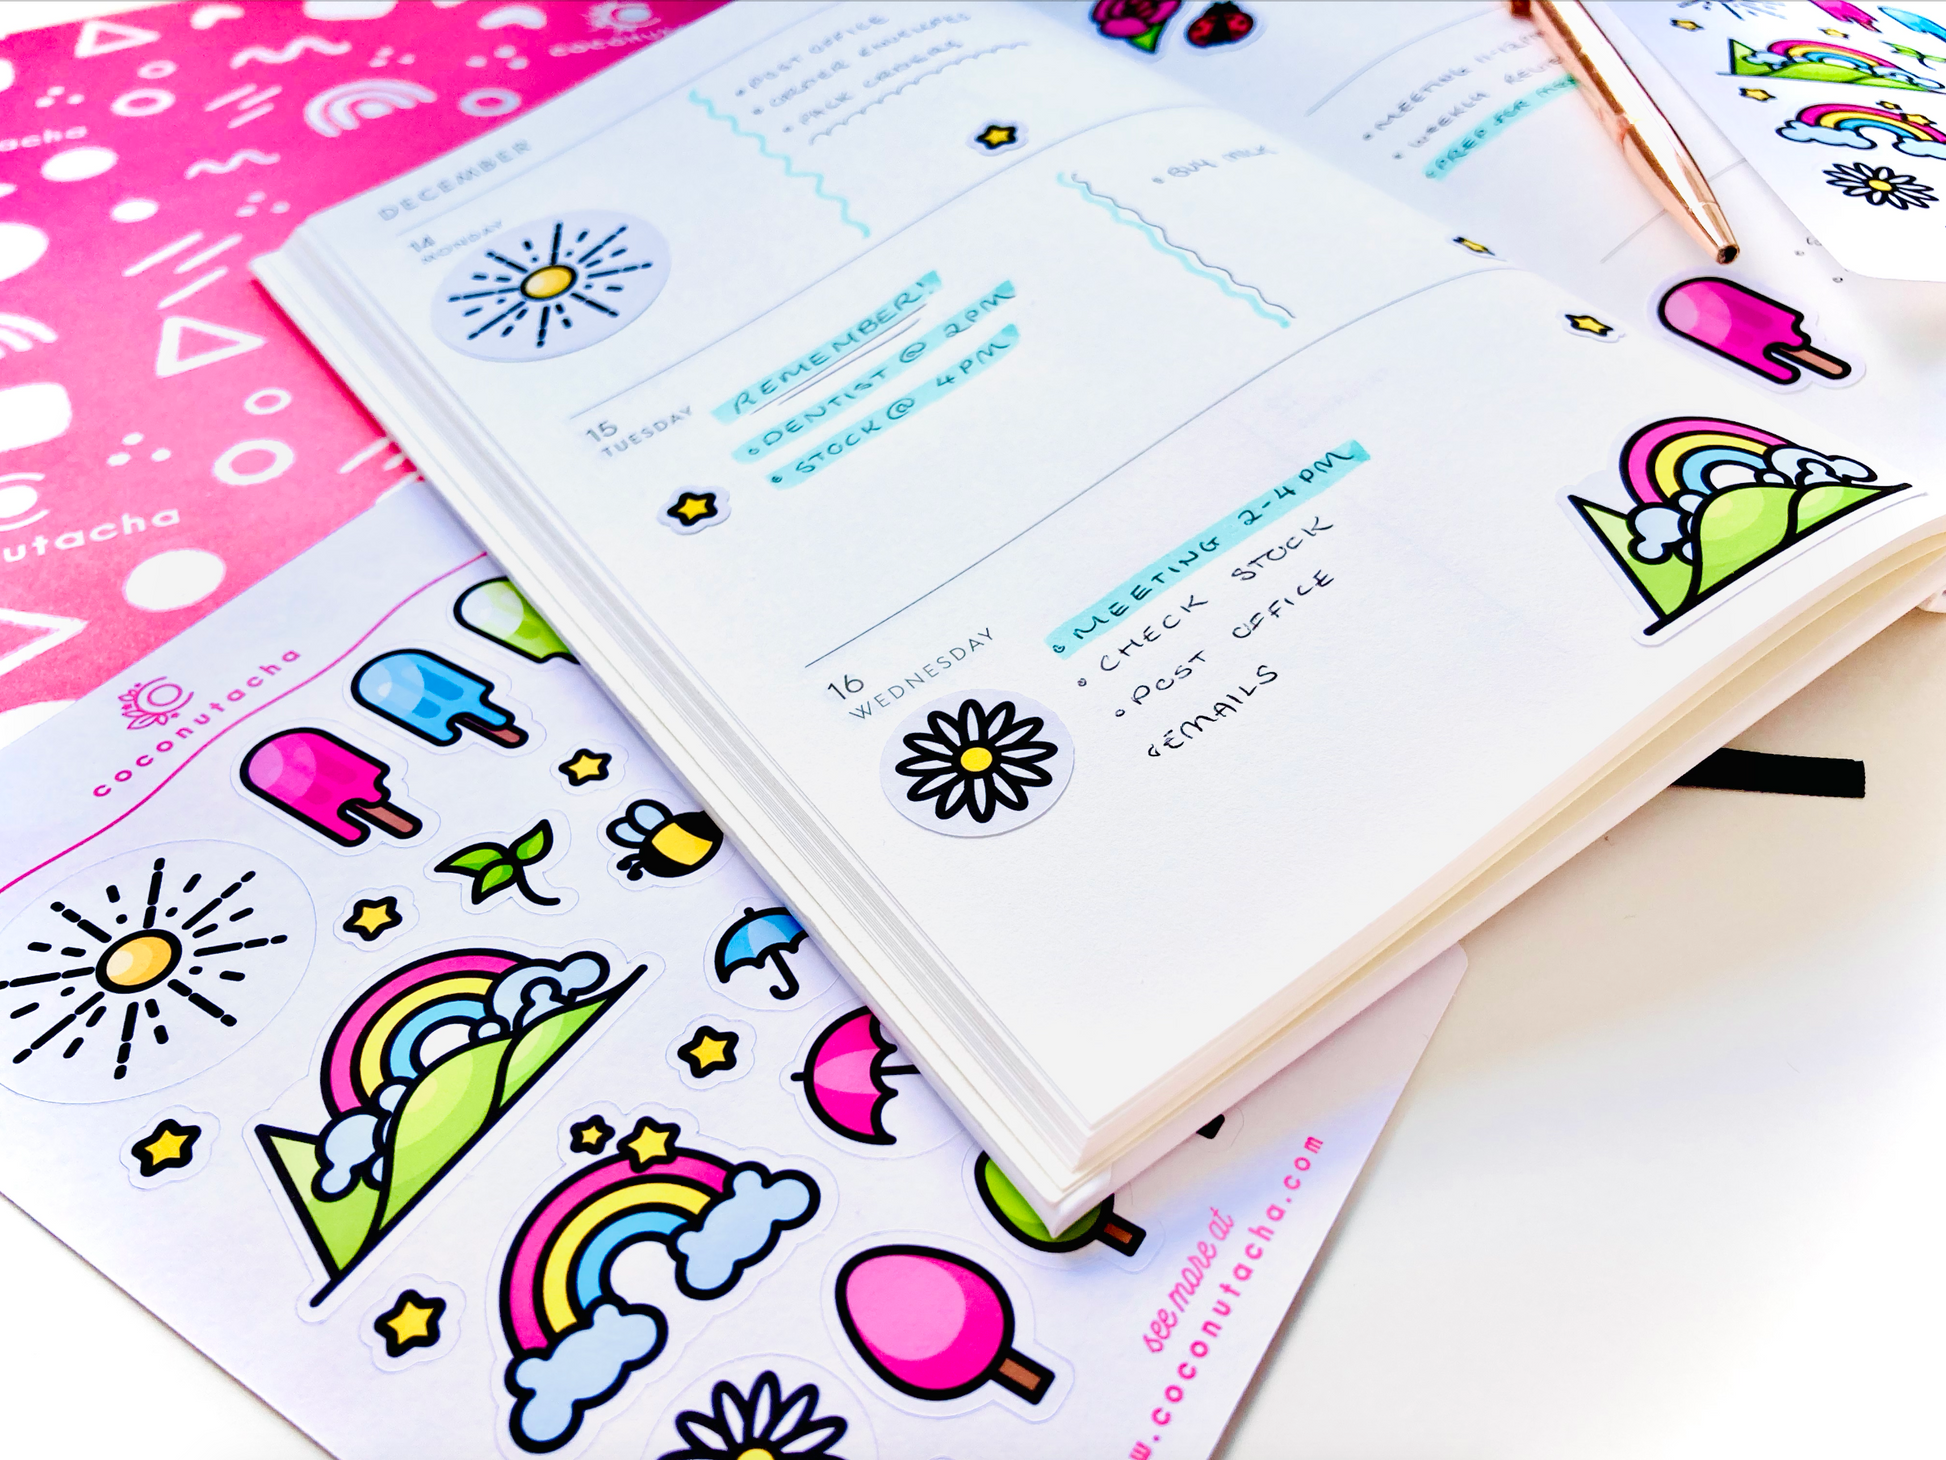 coconutacha
DECEMBER
14
MONDAY
• POST OFFICE
• ORDER ENVELOPES
• PACK ORDERS
15
TUESDAY
REMEMBER!
• DENTIST @ 2PM
• STOCK @ 4PM
• BUY MILK
16
WEDNESDAY
• MEETING 2-4PM
• CHECK STOCK
• POST OFFICE
• EMAILS
• MEETING 11-12PM
• WEEKLY
• PREP FOR
acha
utacha
coconutacha
see more at
w.coconutacha.com